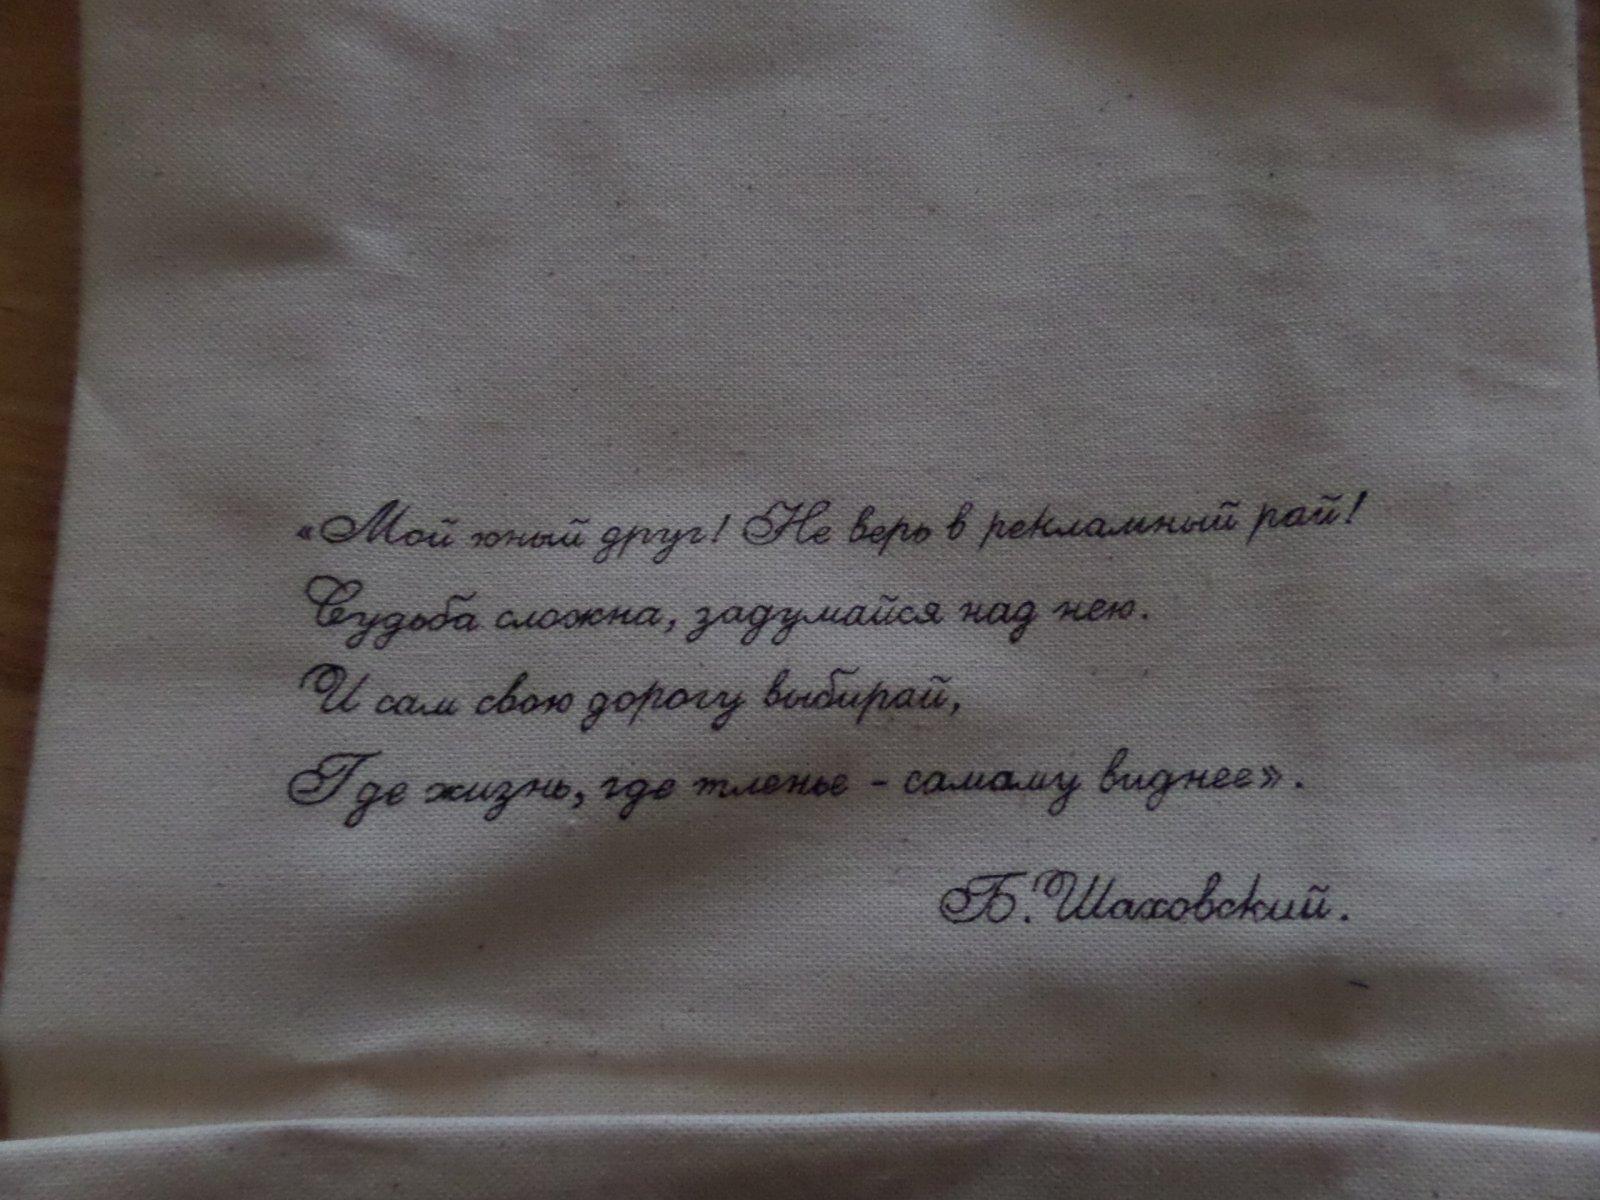 «Мой юный друг! Не верь в рекламный рай!
Судьба сложна, задумайся над нею.
И сам свою дорогу выбирай,
Где жизнь, где тленье - самаму виднее».
Б. Шаховский.